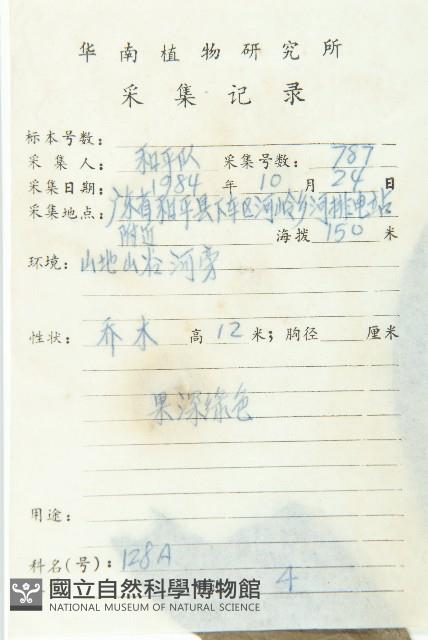 华南植物研究所
采集记录
标本号数:
采集人: 和平队 采集号数: 787
采集日期: 1984 年 10 月 24 日
采集地点: 广东省和平县下车区河岭乡河排电站
附近 海拨 150 米
环境: 山地山谷河旁
性状: 乔木 高 12 米; 胸径 厘米
果深绿色
用途:
科名(号): 128A
4
國立自然科學博物館
NATIONAL MUSEUM OF NATURAL SCIENCE